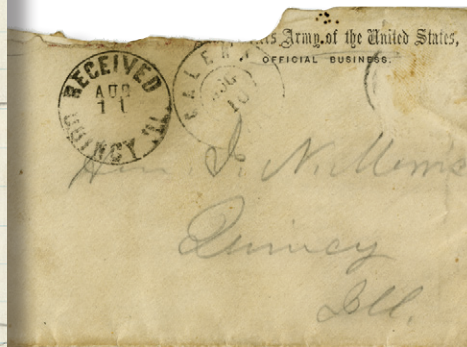 Army of the United States,
OFFICIAL BUSINESS.
RECEIVED
AUG
11
QUINCY, ILL.
GALENA
AUG
10
Hon. I. N. Morris
Quincy
Ill.